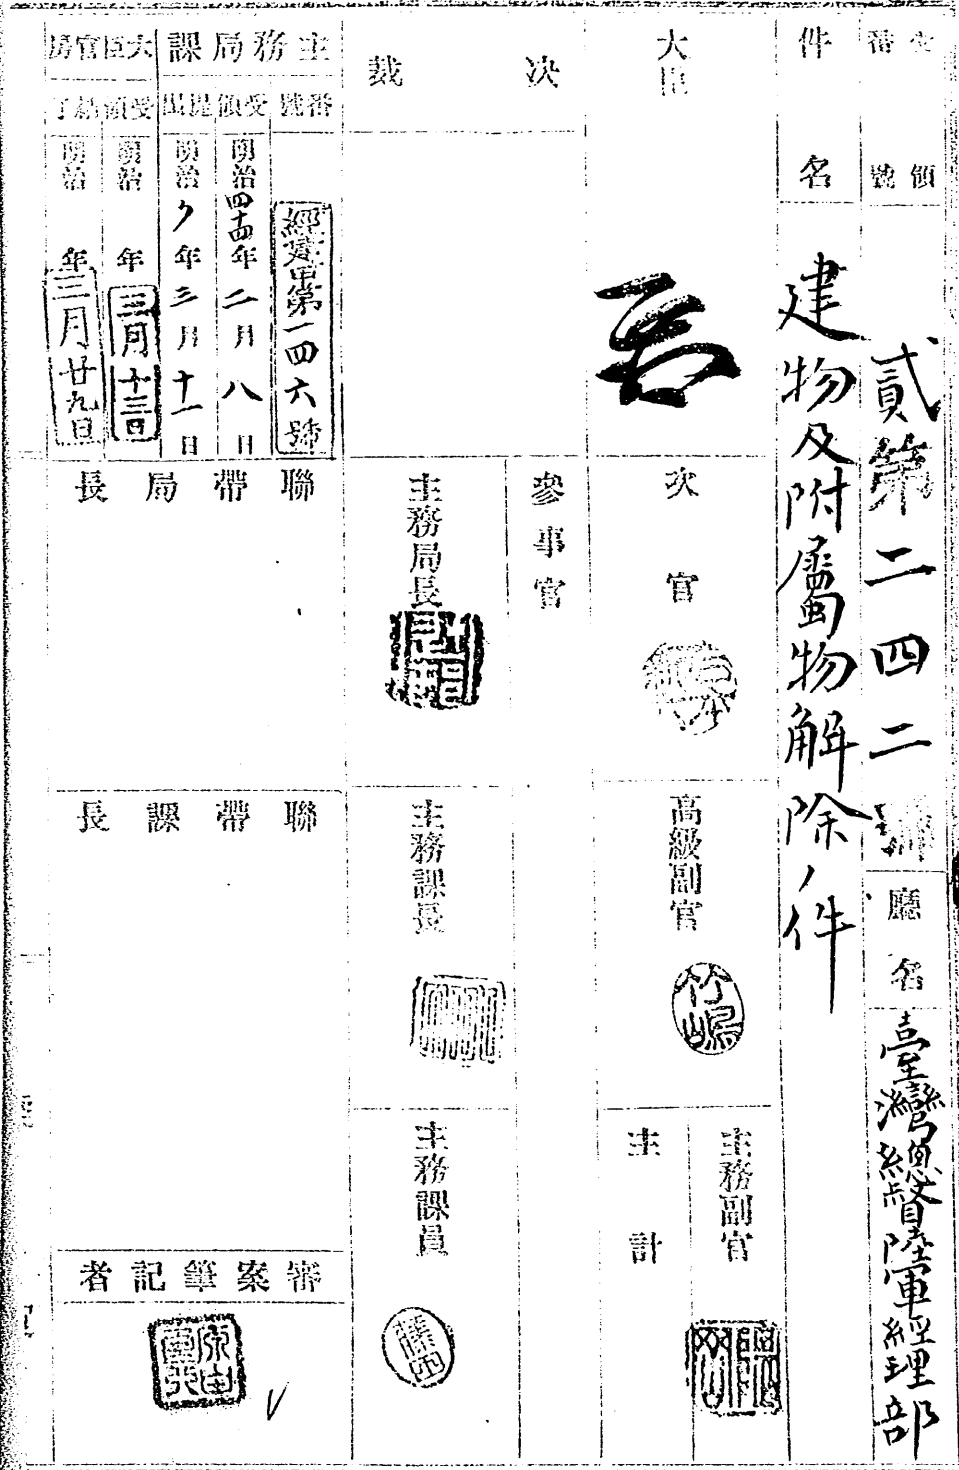 受領
番號
貳第二四二號
廳名
臺灣總督陸軍經理部
件名
建物及附屬物解除ノ件
大臣
次官
高級副官
竹嶋
主務副官
主計
決裁
參事官
主務局長
主務課長
主務課員
主務局課
番號
經建甲第一四六號
受領
明治四十四年二月八日
提出
明治〃年三月十一日
大臣官房
受領
明治 年
三月十三日
結了
明治 年
三月廿九日
聯帶局長
聯帶課長
審案筆記者